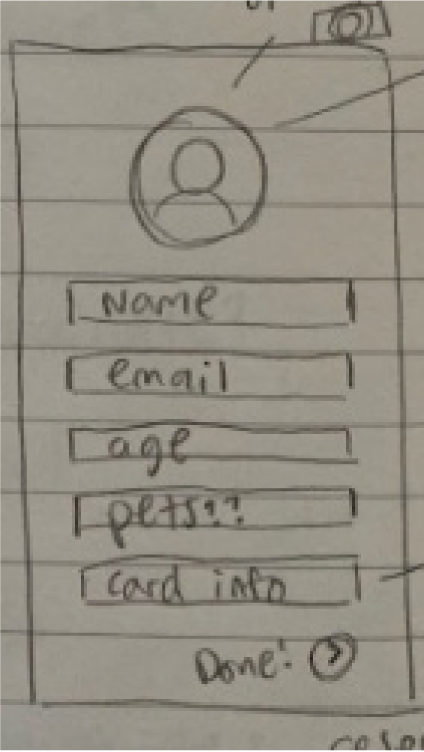 Name
email
age
pets??
card info
Done!